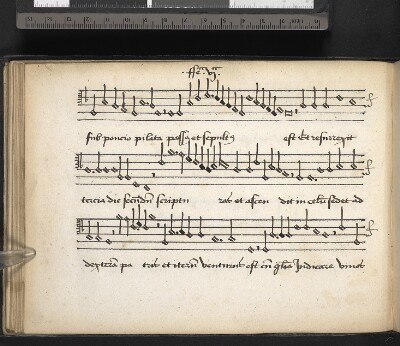 sub poncio pilato pass9 et sepult9 est Et resurrexit
tercia die secundu scriptu ras et ascen dit in celu sedet ad
dextera pa tris et iteru venturus est cu glia Judicare vivos